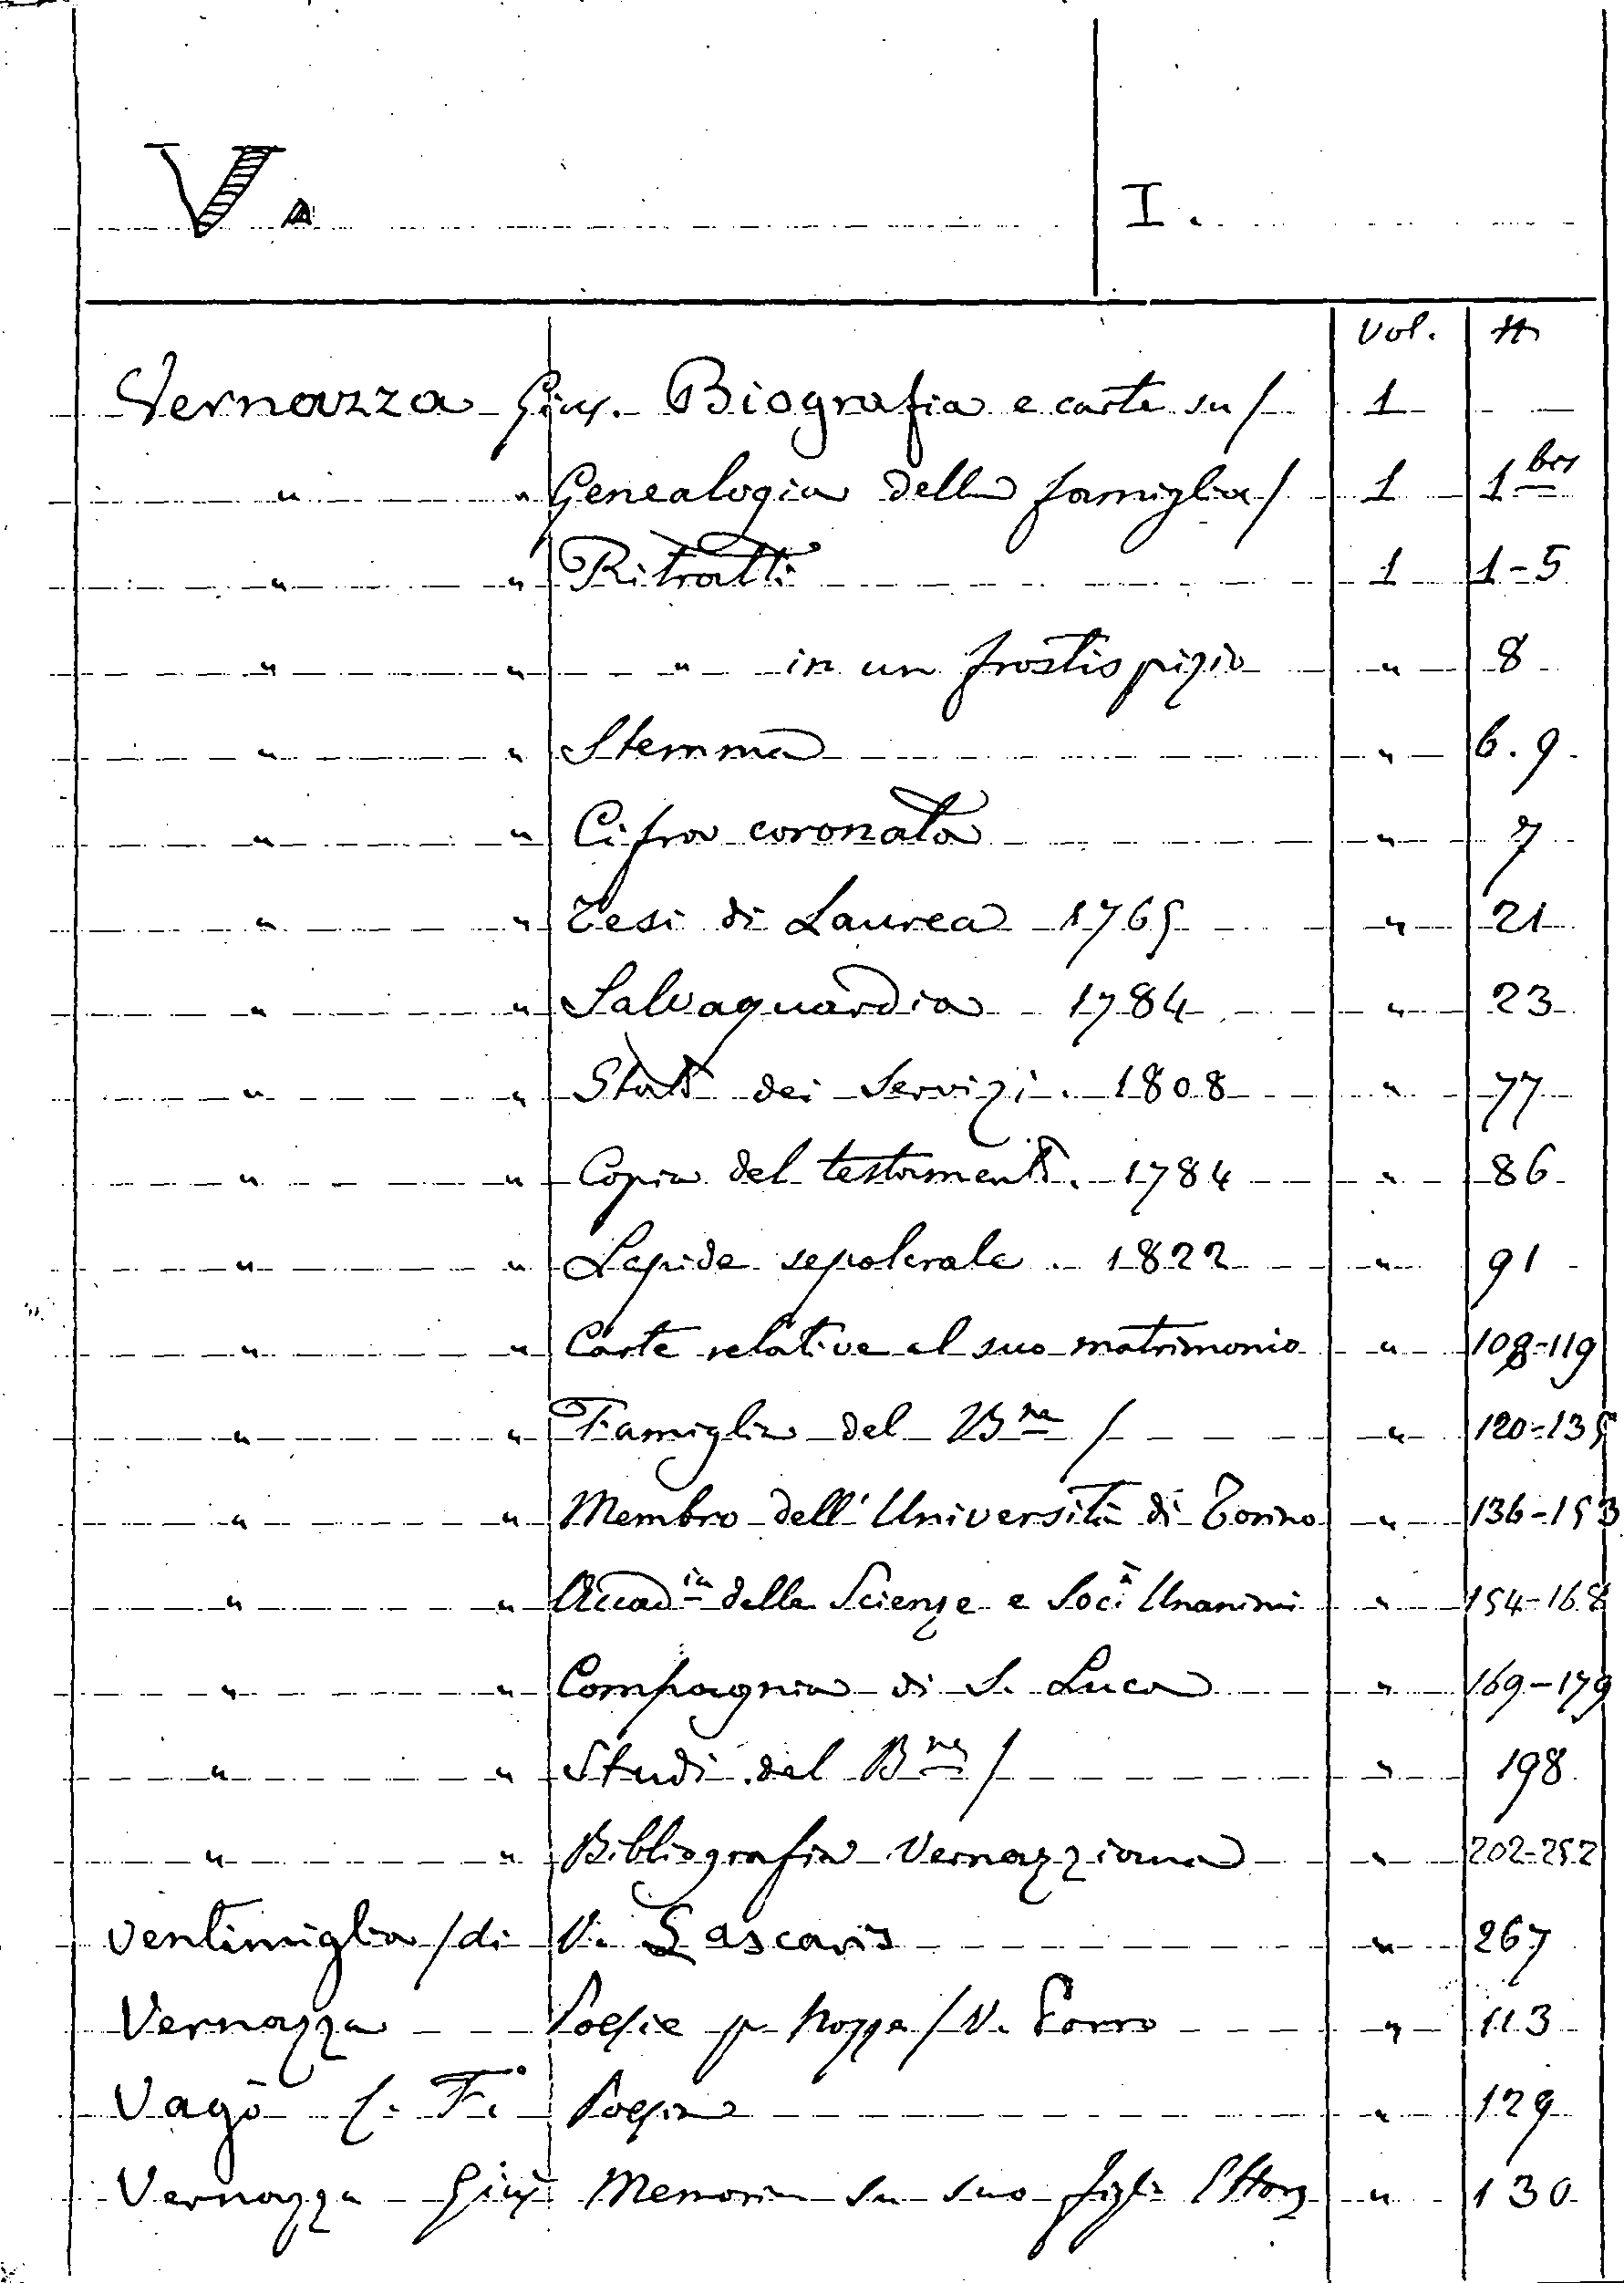 V. I.
Vol. N
Vernazza Gius. Biografia e carte su / 1
" " Genealogia della famiglia / 1 1 bis
" " Ritratti 1 1-5
" " " in un frostispizio " 8
" " Stemma " 6.9.
" " Cifra coronata " 7
" " Tesi di Laurea 1765 " 21
" " Salvaguardia 1784 " 23
" " Stato dei Servizi. 1808 " 77
" " Copia del testamento. 1784 " 86
" " Lapide sepolcrale. 1822 " 91
" " Carte relative al suo matrimonio " 108-119
" " Famiglia del Bne / " 120-135
" " Membro dell'Università di Torino " 136-153
" " Accadia delle Scienze e Socià Unanimi " 154-168
" " Compagnia di S. Luca " 169-179
" " Studi del Bne / " 198
" " Bibliografia Vernazziana " 202-252
Ventimiglia / di V. Lascaris " 267
Vernazza Poesie p nozze / V. Porro " 113
Vagò C. F. Poesia " 129
Vernazza Gius Memoria su suo figlio Ettore " 130